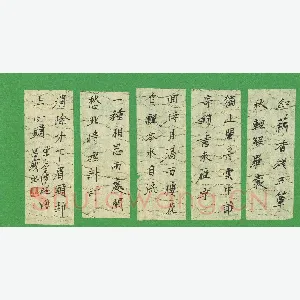 紅藕香殘玉簟
秋輕解羅裳
獨上蘭舟雲中誰
寄錦書來雁字
回時月滿西樓花
自飄零水自流
一種相思兩處閒
愁此情無計可
消除才下眉頭卻
上心頭
Shufawang.CN